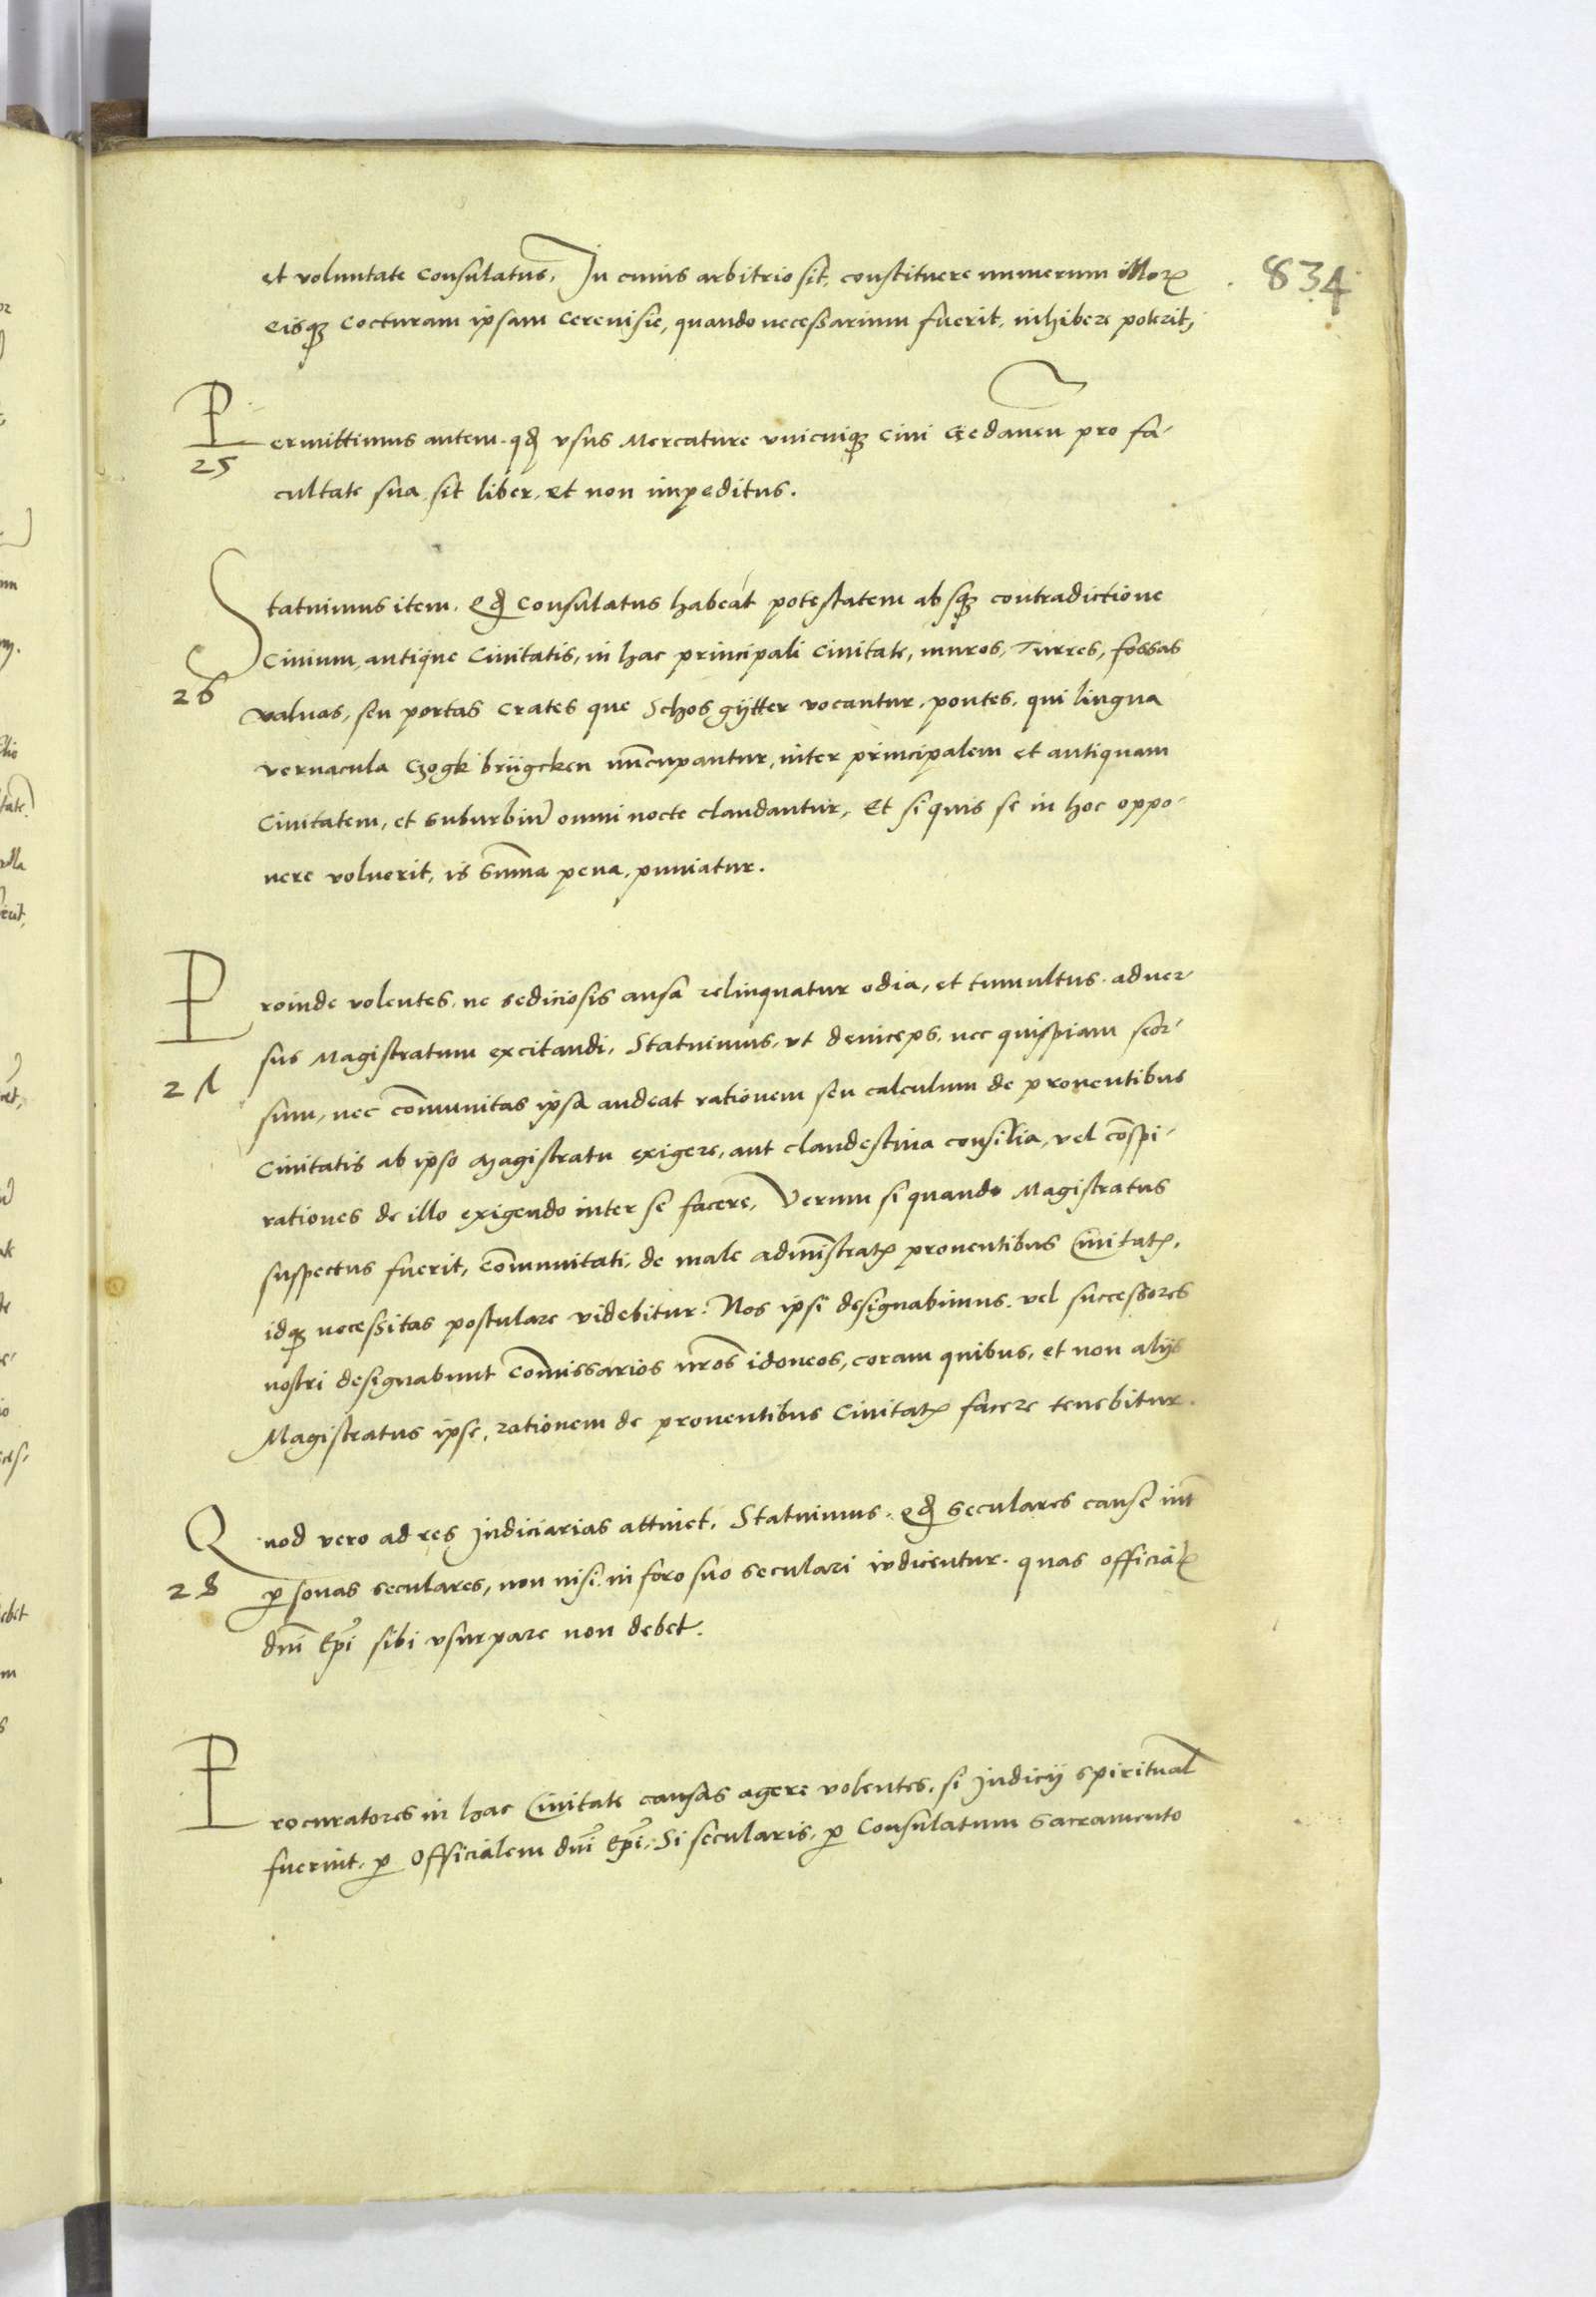 834
et voluntate Consulatus, In cuius arbitrio sit, constituere numerum illoꝝ
eisqꝫ Cocturam ipsam Cereuisie, quando necessarium fuerit, inhibere poterit,
Permittimus autem. qđ vsus Mercature vnicuiqꝫ Ciui Gedaneñ pro fa-
25
cultate sua sit liber, et non impeditus.
Statuimus item. Qđ Consulatus habeat potestatem absqꝫ contradictione
Ciuium, antique Ciuitatis, in hac principali Ciuitate, muros, Turres, fossas
26
valuas, seu portas Crates que Schosgÿtter vocantur, pontes, qui lingua
vernacula Czogk brügcken nūcupantur, inter principalem et antiquam
Ciuitatem, et Suburbiū omni nocte claudantur, Et si quis se in hoc oppo-
nere voluerit, is Sūma pena, puniatur.
Proinde volentes, ne sediciosis ansa relinquatur odia, et tumultus aduer-
sus Magistratum excitandi, Statuimus, vt deinceps, nec quispiam seor-
27
sum, nec cōmunitas ipsa audeat rationem seu calculum de prouentibus
Ciuitatis ab ipso Magistratu exigere, aut clandestina consilia, vel cōspi-
rationes de illo exigendo inter se facere, Verum si quando Magistratus
suspectus fuerit, Cōmunitati, de male admīstratꝭ prouentibus Ciuitatꝭ,
idqꝫ necessitas postulare videbitur: Nos ipsi designabimus, vel successores
nostri designabunt Cōmissarios nr̄os idoneos, coram quibus, et non alijs
Magistratus ipse, rationem de prouentibus Ciuitatꝭ facere tenebitur.
Quod vero ad res Judiciarias attinet, Statuimus. Qđ Seculares cause int̄
28
ꝑsonas seculares, non nisi in foro suo seculari iudicentur. quas officialꝭ
dn̄i Ep̄i sibi vsurpare non debet.
Procuratores in hac Ciuitate causas agere volentes, si Judicij Spiritual̄
fuerint, ꝑ Officialem dn̄i Ep̄i, Si secularis, ꝑ Consulatum Sacramento